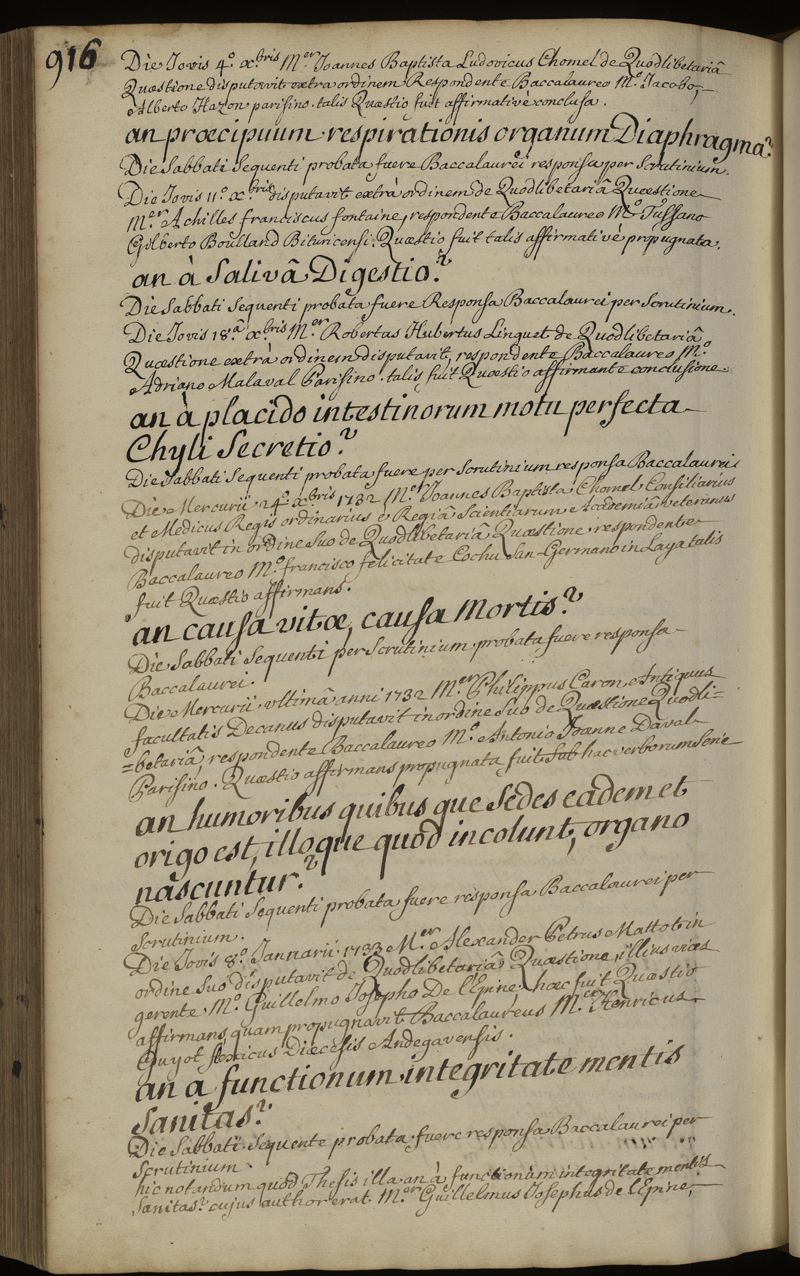 916
Die Jovis 4.º x.bris M.er Joannes Baptista Ludovicus Chomel de Quodlibetariâ
Quæstione disputavit extra ordinem Respondente Baccalaureo M.º Jacobo,
Alberto Hazon parisino. talis Quæstio fuit affirmativè conclusa.
an præcipuum respirationis organum Diaphragma?
Die Sabbati Sequenti probata fuere Baccalaurei responsa per Scrutinium.
Die Jovis 11.º x.bris disputavit extrà ordinem de Quodlibetariâ Quæstione
M.er Achilles franciscus fontaine, respondente Baccalaureo M.º Tussano
Gilberto Boulland Bituricensi. Quæstio fuit talis affirmativè propugnata.
an à Salivâ Digestio?
Die Sabbati Sequenti probata fuere Responsa Baccalaurei per Scrutinium.
Die Jovis 18.a x.bris M.er Robertus Hubertus Linguet de Quodlibetariâ
Quæstione extrà ordinem disputavit, respondente Baccalaureo M.º
Adriano Malaval Parisino. talis fuit Quæstio affirmante conclusione
an à placido intestinorum motu perfecta
Chyli Secretio?
Die Sabbati Sequenti probata fuere per Scrutinium responsa Baccalaurei
Die Mercurii 24.º x.bris 1732 M.er Joannes Baptista Chomel Consiliarius
et Medicus Regis ordinarius è Regiâ Scientiarum Academiâ veteranus
disputavit in ordine Suo de Quodlibetariâ Quæstione, respondente
Baccalaureo M.º francisco felicitate Cochu San-Germano in Laya talis
fuit Quæstio affirmans.
an causa vitæ, causa Mortis?
Die Sabbati Sequenti per Scrutinium probata fuere responsa
Baccalaurei.
Die Mercurii ultimâ anni 1732 M.er Philippus Caron Antiquus
facultatis Decanus disputavit in ordine Suo de Quæstione Quodli=
=betariâ, respondente Baccalaureo M.º Antonio Joanne Daval
Parisino. Quæstio affirmans propugnata fuit Sub hac verborum Serie
an humoribus quibus que Sedes eadem et
origo est, illoque quod incolunt, organo
nascuntur?
Die Sabbati Sequenti probata fuere responsa Baccalaurei per
Scrutinium.
Die Jovis 8.º Jannarii 1733 M.er Alexander Petrus Mattot in
ordine Suo disputavit de Quodlibetariâ Quæstione, illius vices
gerente M.º Guillelmo Josepho De l'Epine. hæc fuit Quæstio
affirmans quam propugnavit Baccalaureus M.er Henricus
Guyot Diæcesis Andegavensis.
an a functionum integritate mentis
Sanitas?
Die Sabbati Sequente probata fuere responsa Baccalaurei per
Scrutinium.
hic notandum quod Thesis illa an à functionum integritate mentis
Sanitas? cujus author erat M.er Guillelmus Josephus de l'Epine,